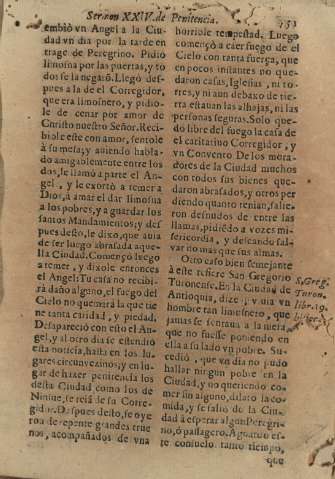 Sermon XXIV. de Penitencia.
151
embiò vn Angel a la Ciu-
dad vn dia por la tarde en
trage de Peregrino. Pidiò
limosna por las puertas, y to
dos se la negarõ. Llegò des-
pues a la de el Corregidor,
que era limosnero, y pidio-
le de cenar por amor de
Christo nuestro Señor. Reci-
biole este con amor, sentole
à su mesa, y auiendo habla-
do amigablemente entre los
dos, le llamò a parte el An-
gel, y le exortò a temer a
Dios, à amar el dar limosna
a los pobres, y a guardar los
santos Mandamientos; y des
pues desto, le dixo, que auia
de ser luego abrasada aque-
lla Ciudad. Començò luego
a temer, y dixole entonces
el Angel: Tu casa no recibi-
rà daño alguno, el fuego del
Cielo no quemarà la que tie
ne tanta caridad, y piedad.
Desapareciò con esto el An-
gel, y al otro dia se estendiò
esta noticia, hasta en los lu-
gares circunvezinos; y en lu-
gar de hazer penitencia los
desta Ciudad como los de
Niniue, se reìa de su Corre-
gidor. Despues desto, se oye
ron de repente grandes true
nos, acompañados de vna
horrible tempestad. Luego
començò a caer fuego de el
Cielo con tanta fuerça, que
en pocos instantes no que-
daron casas, Iglesias, ni to-
rres, y ni aun debaxo de tie-
rra estauan las alhajas, ni las
personas seguras. Solo que-
dò libre del fuego la casa de
el caritatiuo Corregidor, y
vn Convento De los mora-
dores de la Ciudad muchos
con todos sus bienes que-
daron abrasados, y otros per
diendo quanto tenian, salie-
ron desnudos de entre las
llamas, pidiẽdo a vozes mi-
sericordia, y deseando sal-
var no mas que sus almas.
Otro caso bien semejante
à este refiere San Gregorio
Turonense. En la Ciudad de
Antioquia, dize, y auia vn
hombre tan limosnero, que
jamàs se sentaua a la mesa,
que no fuesse poniendo en
ella a su lado vn pobre. Su-
cediò, que vn dia no pudo
hallar ningun pobre en la
Ciudad, y no queriendo co-
mer sin alguno, dilatò la co-
mida, y se salio de la Ciu-
dad à esperar algun Peregri-
no, ò passagero. Aguardò es-
te consuelo tanto tiempo,
que
S. Greg.
Turon.